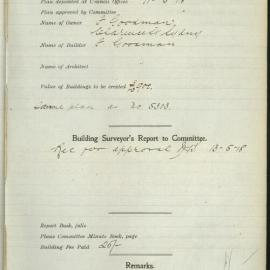 Plan deposited at Council Office 17-5-18
Plan approved by Committee
Name of Owner F Goodman,
Clarence St Sydney
Name of Builder F Goodman
Name of Architect
Value of Buildings to be erected £900.
Same plan as No. 5303.
Building Surveyor's Report to Committee.
Rec for approval 13-5-18
Report Book, folio
Plans Committee Minute Book, page
Building Fee Paid 20/-
Remarks.